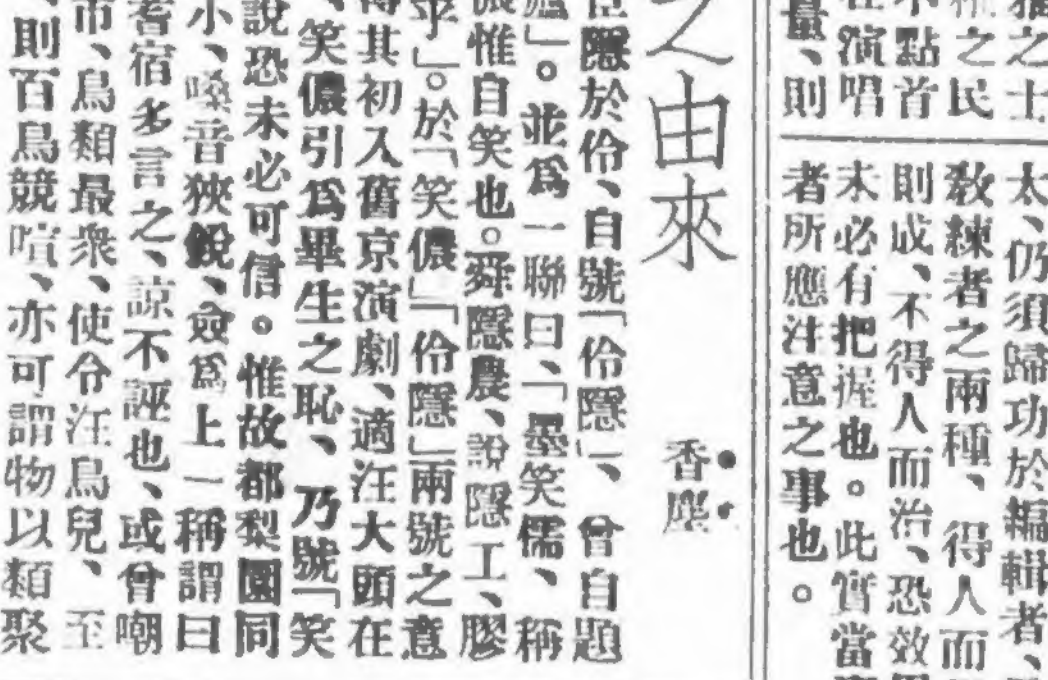 之士
之民
不點首
在演唱
量、則
太、仍須歸功於編輯者、
敎練者之兩種、得人而
則成、不得人而治、恐效
未必有把握也。此實當
者所應注意之事也。
之由來
香塵
臣隱於伶、自號「伶隱」、曾自題
廬」。並爲一聯曰、「墨笑儒、稱
儂惟自笑也。舜隱農、說隱工、膠
乎」。於「笑儂」「伶隱」兩號之意
得其初入舊京演劇、適汪大頭在
、笑儂引爲畢生之恥、乃號「笑
說恐未必可信。惟故都梨園同
小、嗓音狹銳、僉爲上一稱謂曰
耆宿多言之、諒不誣也、或曾嘲
市、鳥類最衆、使令汪鳥兒、至
、則百鳥競喧、亦可謂物以類聚